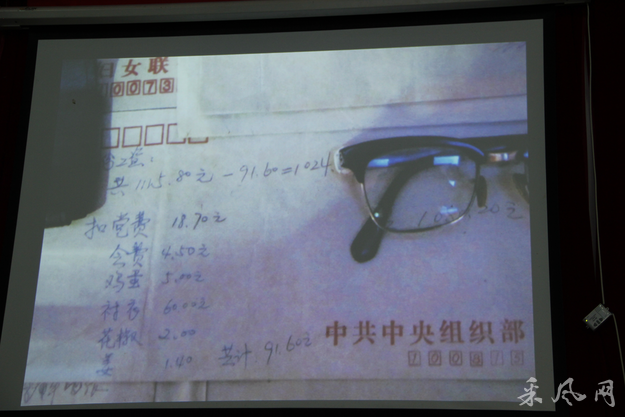 妇女联
10073
共1115.80元-91.60=1024
扣党费 18.70元
会费 4.50元
鸡蛋 5.00元
衬衣 60.00元
花椒 2.00
姜 1.40 共计 91.60元
中共中央组织部
采风网